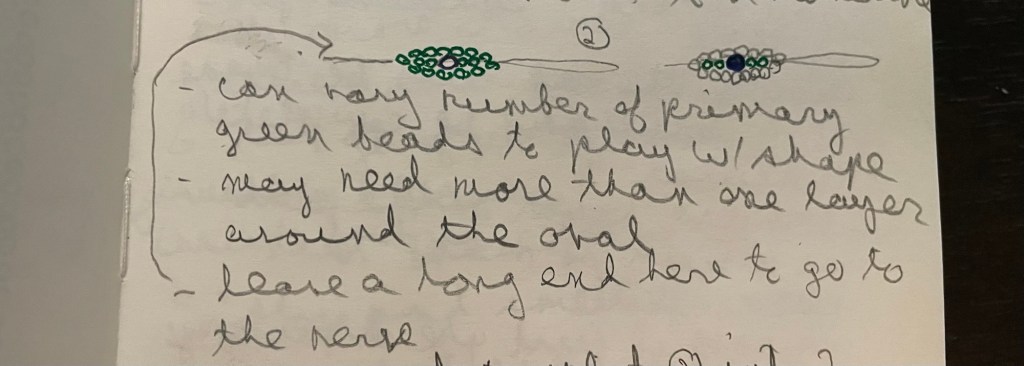 ②
- can vary number of primary
green beads to play w/ shape
- may need more than one layer
around the oval
- leave a long end here to go to
the nerve